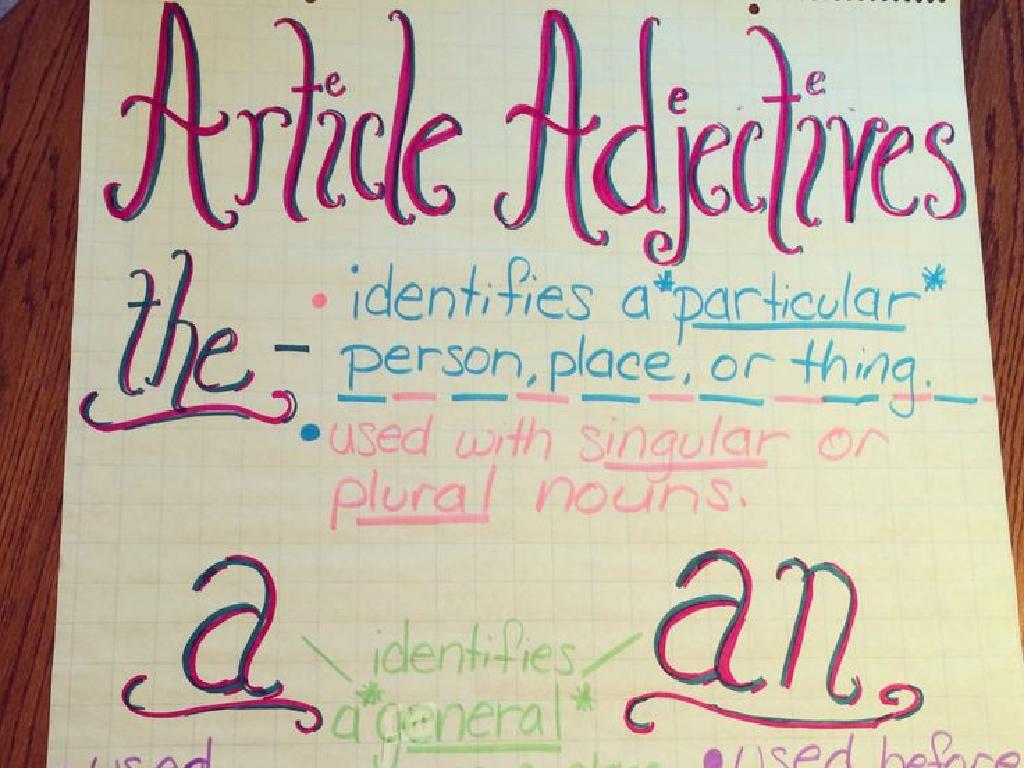 Article Adjectives
the - • identifies a *particular*
person, place, or thing.
• used with singular or
plural nouns.
a an
identifies
a *general*
used • used before